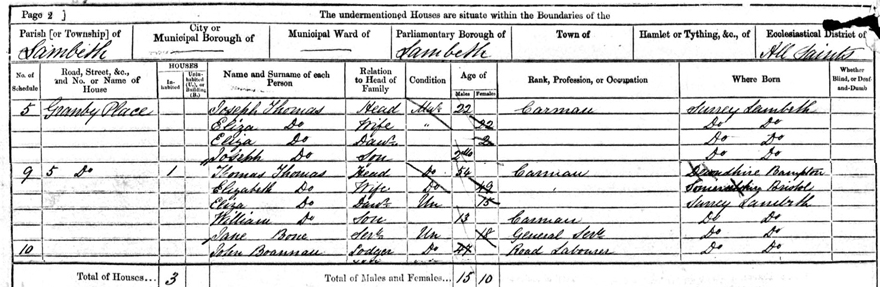 Page 2] The undermentioned Houses are situate within the Boundaries of the
Parish [or Township] of City or Municipal Borough of Municipal Ward of Parliamentary Borough of Town of Hamlet or Tything, &c., of Ecclesiastical District of
Lambeth Lambeth All Saints
No. of Schedule Road, Street, &c., and No. or Name of House HOUSES Inhabited Uninhabited (U.), or Building (B.) Name and Surname of each Person Relation to Head of Family Condition Age of Males Females Rank, Profession, or Occupation Where Born Whether Blind, or Deaf-and-Dumb
5 Granby Place Joseph Thomas Head Mar 22 Carman Surrey Lambeth
Eliza Do Wife " 22 Do Do
Eliza Do Daur 2 Do Do
Joseph Do Son Do Do
9 5 Do 1 Thomas Thomas Head Do 54 Carman Devonshire Bampton
Elizabeth Do Wife Do 49 Bristol
Eliza Do Daur Un 15 Surrey Lambeth
William Do Son 13 Carman Do Do
Jane Bone Servt Un 18 General Servt Do Do
10 John Boannau Lodger Do 47 Road Labourer Do Do
Total of Houses... 3 Total of Males and Females... 15 10